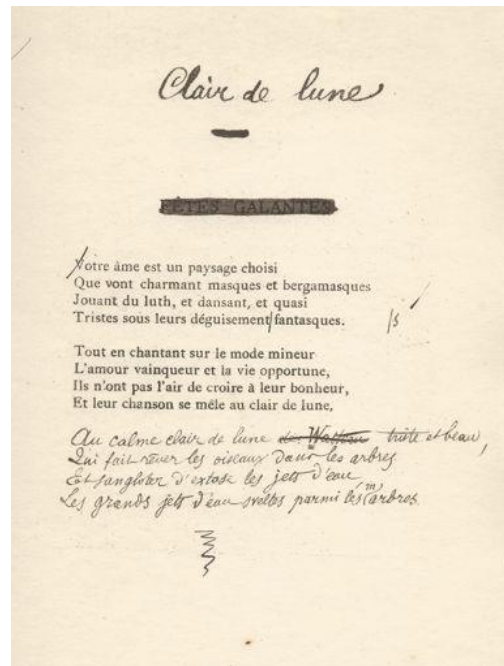 Clair de lune
FÊTES GALANTES
Votre âme est un paysage choisi
Que vont charmant masques et bergamasques
Jouant du luth, et dansant, et quasi
Tristes sous leurs déguisement fantasques. /s
Tout en chantant sur le mode mineur
L'amour vainqueur et la vie opportune,
Ils n'ont pas l'air de croire à leur bonheur,
Et leur chanson se mêle au clair de lune,
Au calme clair de lune de Watteau triste et beau,
Qui fait rêver les oiseaux dans les arbres
Et sangloter d'extase les jets d'eau
Les grands jets d'eau sveltes parmi les (m)arbres.